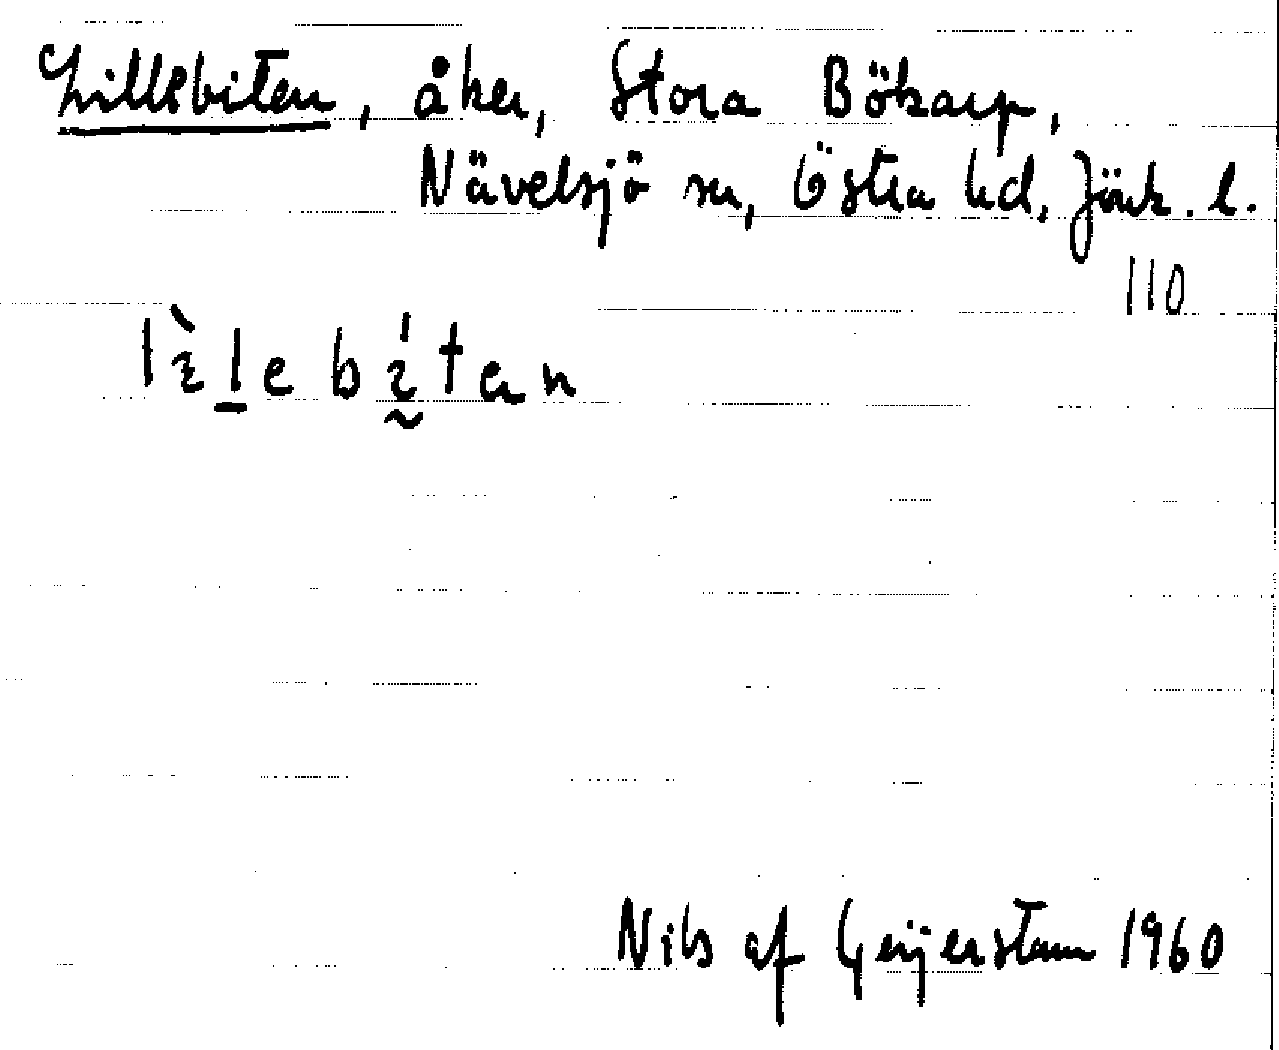 Lillebiten, åker, Stora Bökarp,
Nävelsjö sn, Östra hd, Jönk. l.
110
lìlebítan
Nils af Geijerstam 1960